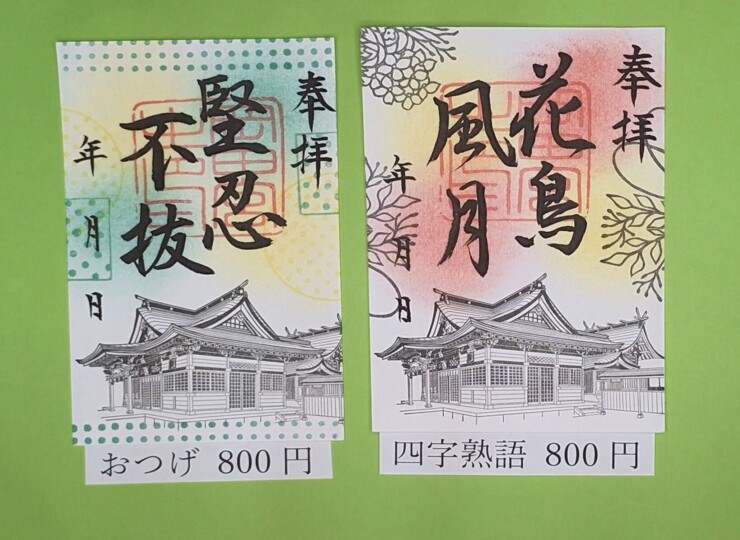 奉拝
堅忍
不抜
年月日
おつげ 800円
奉拝
花鳥
風月
年月日
四字熟語 800円